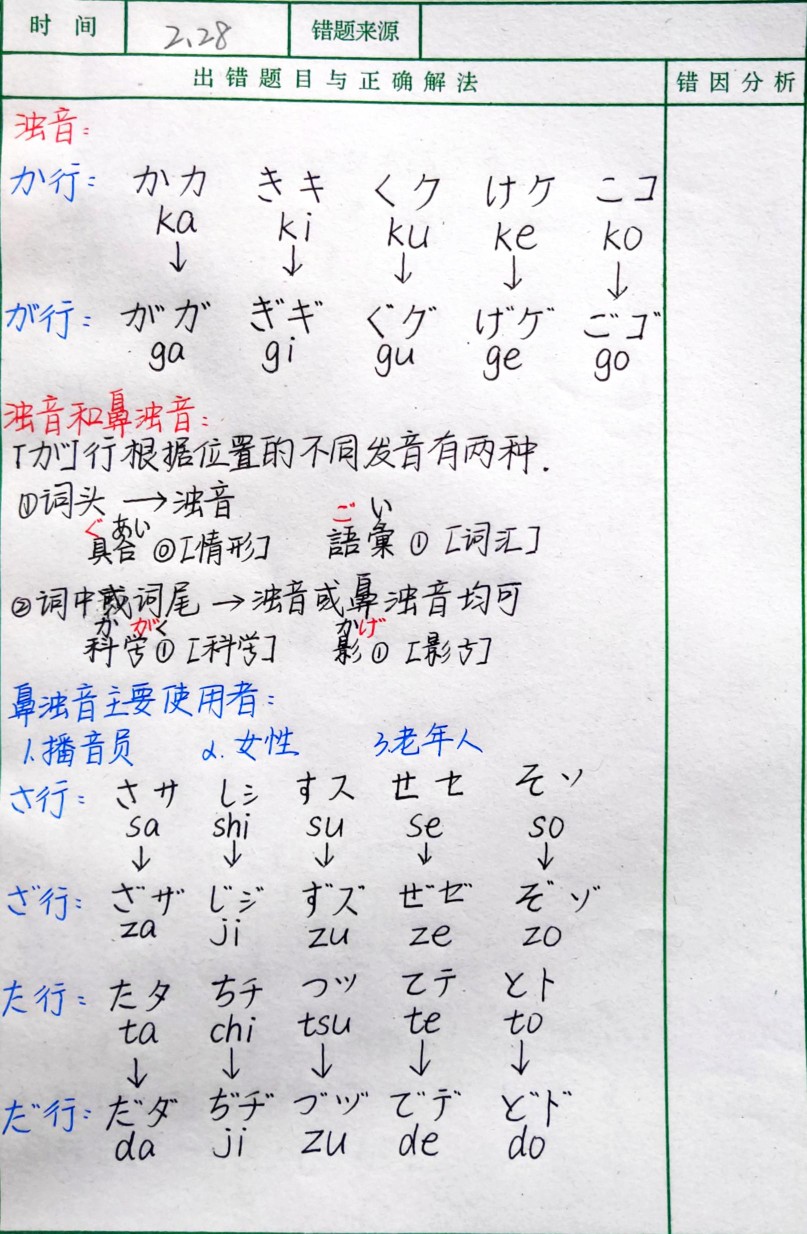 时 间 2.28 错题来源
出错题目与正确解法 错因分析
浊音:
か行: かカ きキ くク けケ こコ
ka ki ku ke ko
↓ ↓ ↓ ↓ ↓
が行: がガ ぎギ ぐグ げゲ ごゴ
ga gi gu ge go
浊音和鼻浊音:
「が」行根据位置的不同发音有两种.
①词头 → 浊音
ぐあい ごい
具合 ⓪[情形] 語彙 ① [词汇]
②词中或词尾 → 浊音或鼻浊音均可
かがく かげ
科学① [科学] 影① [影子]
鼻浊音主要使用者:
1.播音员 2.女性 3.老年人
さ行: さサ しシ すス せセ そソ
sa shi su se so
↓ ↓ ↓ ↓ ↓
ざ行: ざザ じジ ずズ ぜゼ ぞゾ
za ji zu ze zo
た行: たタ ちチ つツ てテ とト
ta chi tsu te to
↓ ↓ ↓ ↓ ↓
だ行: だダ ぢヂ づヅ でデ どド
da ji zu de do